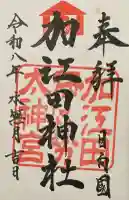 奉拝
日向國
加江田神社
加江田
太神宮
令和八年
月吉日